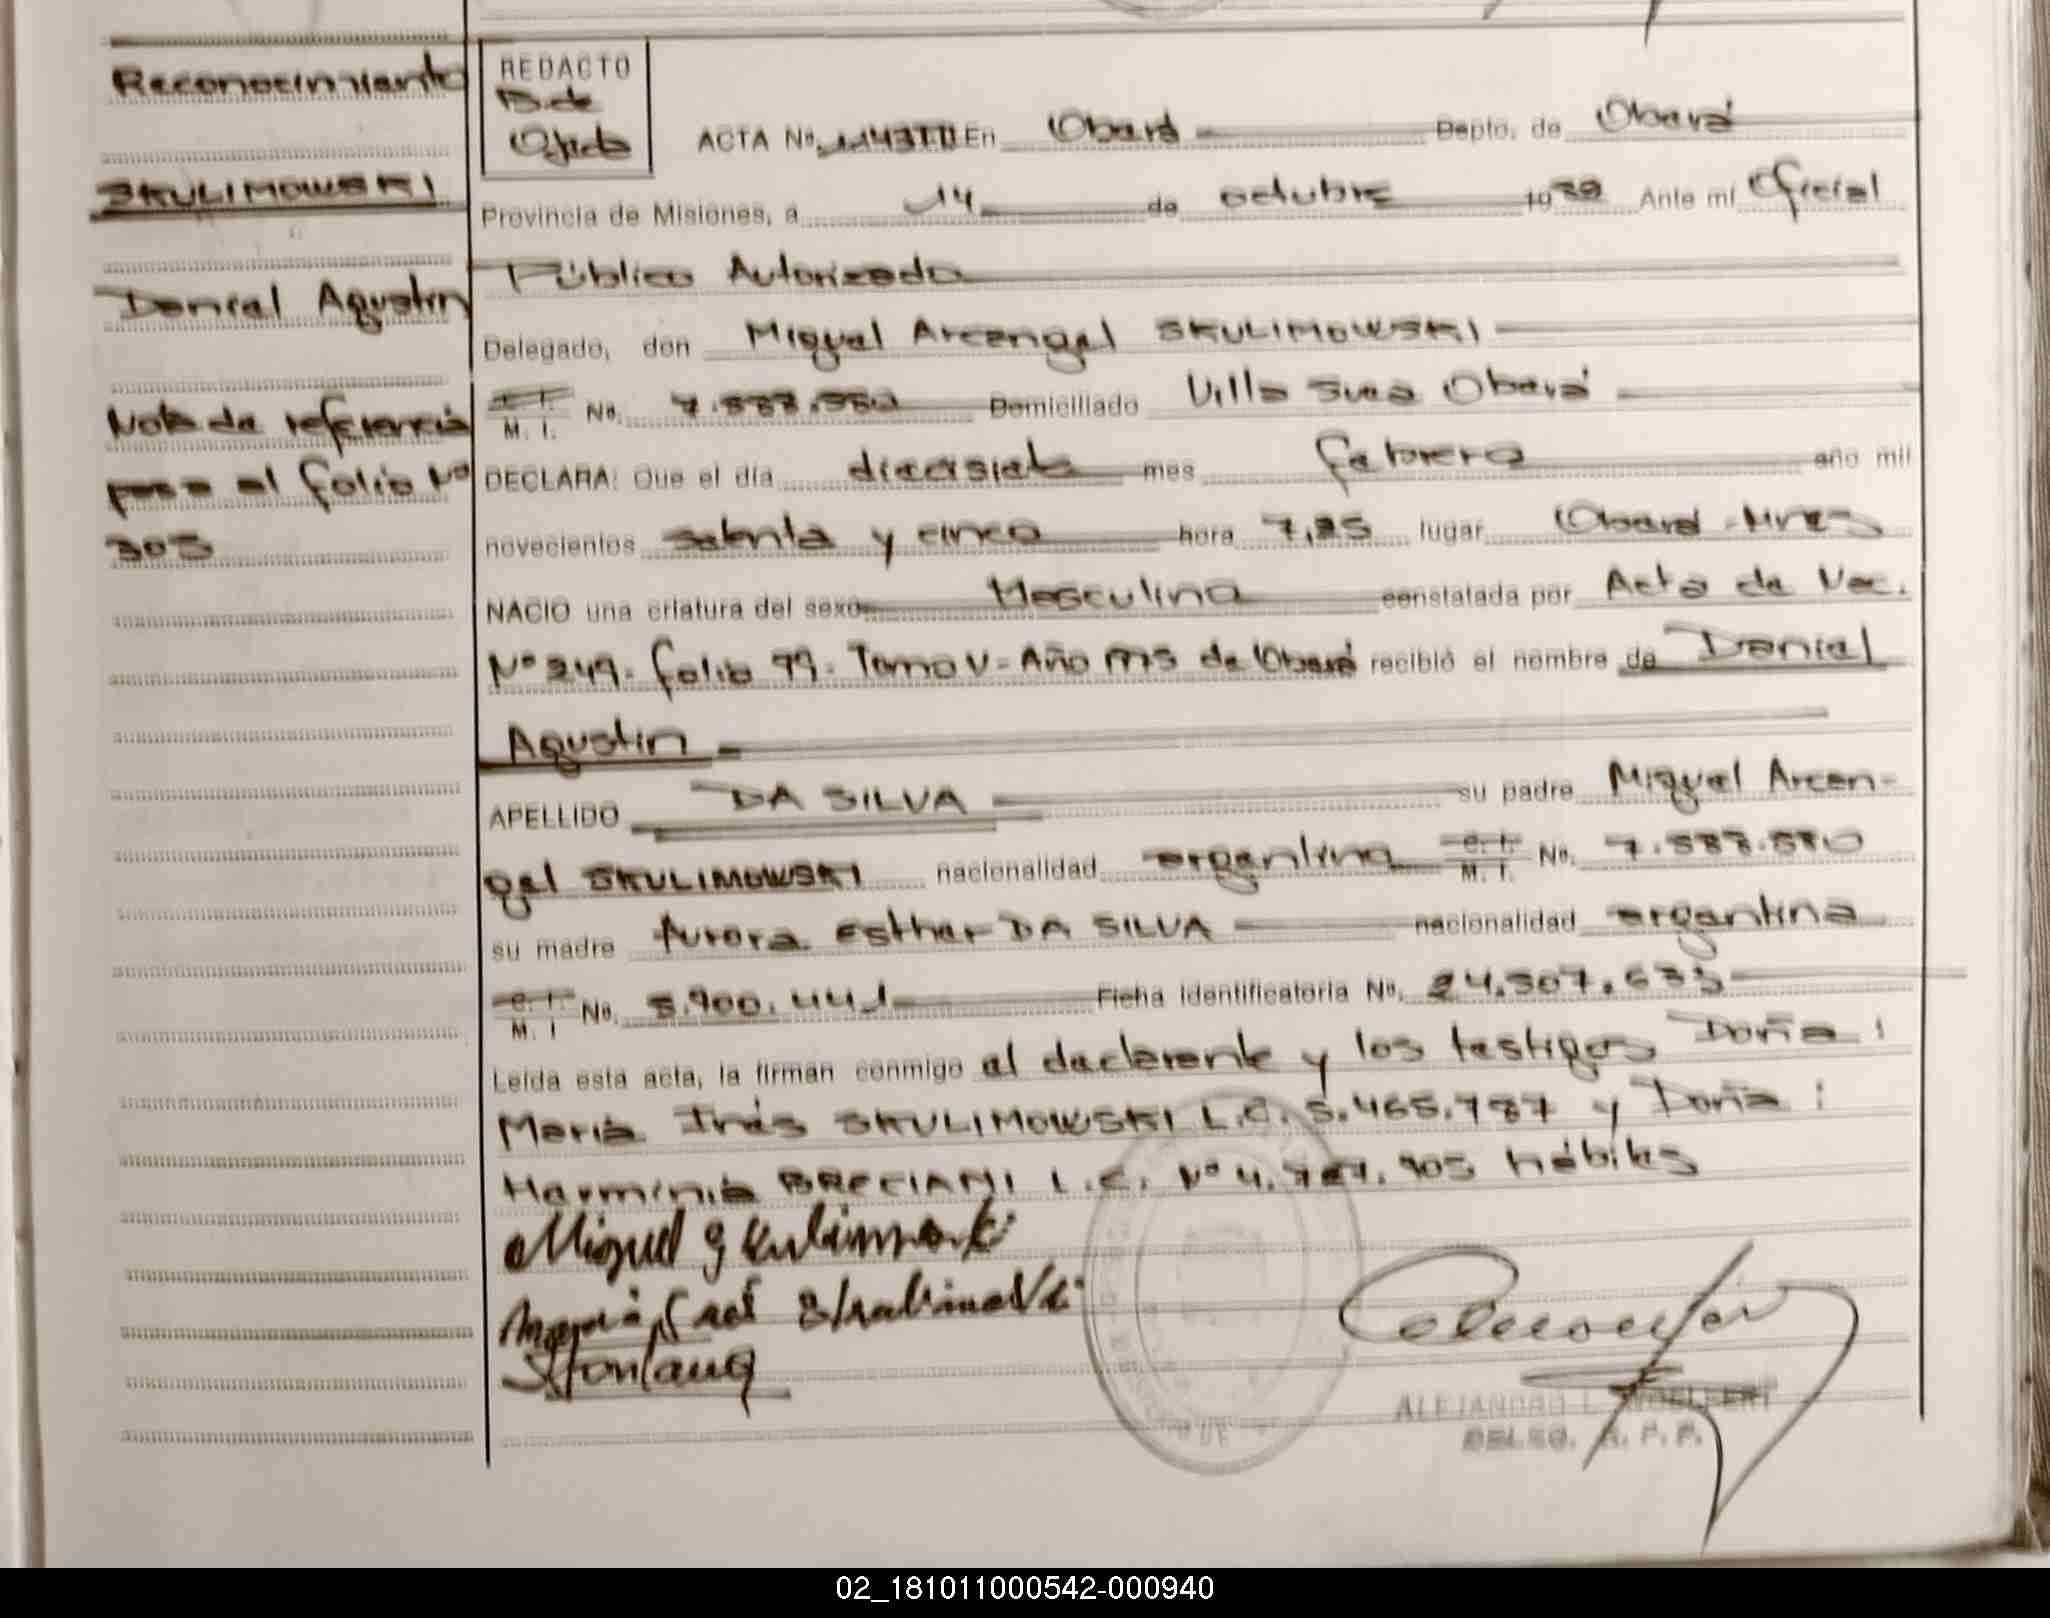 Reconocimiento
SKULIMOWSKI
Daniel Agustin
Nota de referencia
pasa al folio Nº
305
REDACTO
B. de
ACTA Nº. En Oberá Depto. de Oberá
Provincia de Misiones, a 14 de octubre 19 Ante mí Oficial
Público Autorizado
Delegado, don Miguel Arcangel SKULIMOWSKI
C. I. M. I. No. Domiciliado Villa Suea Oberá
DECLARA: Que el día diecisiete mes febrero año mil
novecientos setenta y cinco hora 7,25 lugar Oberá - Mnes
NACIO una criatura del sexo Masculino constatada por Acta de Nac.
Nº 249. folio 99. Tomo V - Año de Oberá recibió el nombre de Daniel
Agustin
APELLIDO DA SILVA su padre Miguel Arcan-
gel SKULIMOWSKI nacionalidad argentina C. I. M. I. No.
su madre Aurora Esther DA SILVA nacionalidad argentina
C. I. M. I No. 5.900.441 Ficha Identificatoria Nº. 24.307.633
Leída esta acta, la firman conmigo el declarante y los testigos Doña:
María Inés SKULIMOWSKI L.C. 5.465.787 y Doña:
Herminia L.C. Nº hábiles
Miguel
ALEJANDRO L.
DELEG. R. P. P.
02_181011000542-000940